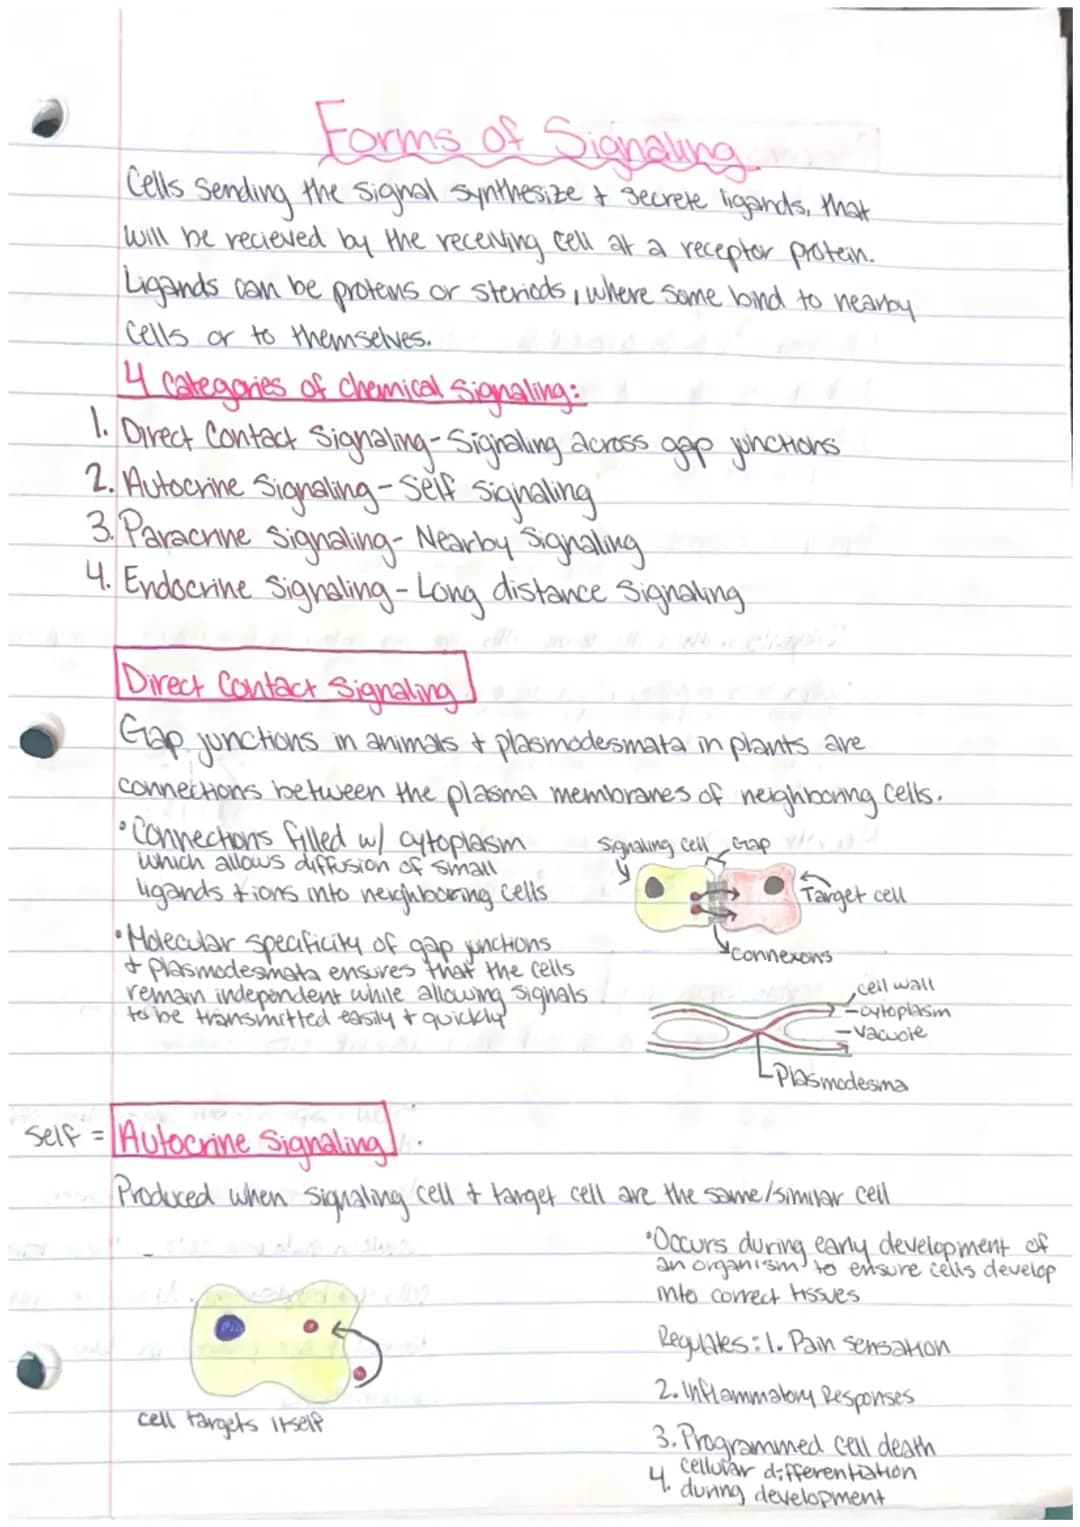 Forms of Signaling
Cells sending the signal synthesize + secrete ligands, that
will be recieved by the receiving cell at a receptor protein.
Ligands can be proteins or steriods, where some bind to nearby
cells or to themselves.
4 Categories of chemical signaling:
1. Direct Contact Signaling - Signaling across gap junctions
2. Autocrine Signaling - Self signaling
3. Paracrine Signaling - Nearby signaling
4. Endocrine Signaling - Long distance signaling
Direct Contact Signaling
Gap junctions in animals + plasmodesmata in plants are
connections between the plasma membranes of neighboring cells.
•Connections filled w/ cytoplasm
which allows diffusion of small
ligands + ions into neighboring cells
•Molecular specificity of gap junctions
+ plasmodesmata ensures that the cells
remain independent while allowing signals
to be transmitted easily + quickly
Signaling cell
Gap
Target cell
Connexons
cell wall
cytoplasm
vacuole
Plasmodesma
Self = Autocrine Signaling
Produced when signaling cell + target cell are the same/similar cell
cell targets itself
•Occurs during early development of
an organism to ensure cells develop
into correct tissues
Regulates: 1. Pain sensation
2. Inflammatory Responses
3. Programmed cell death
4. cellular differentiation
during development